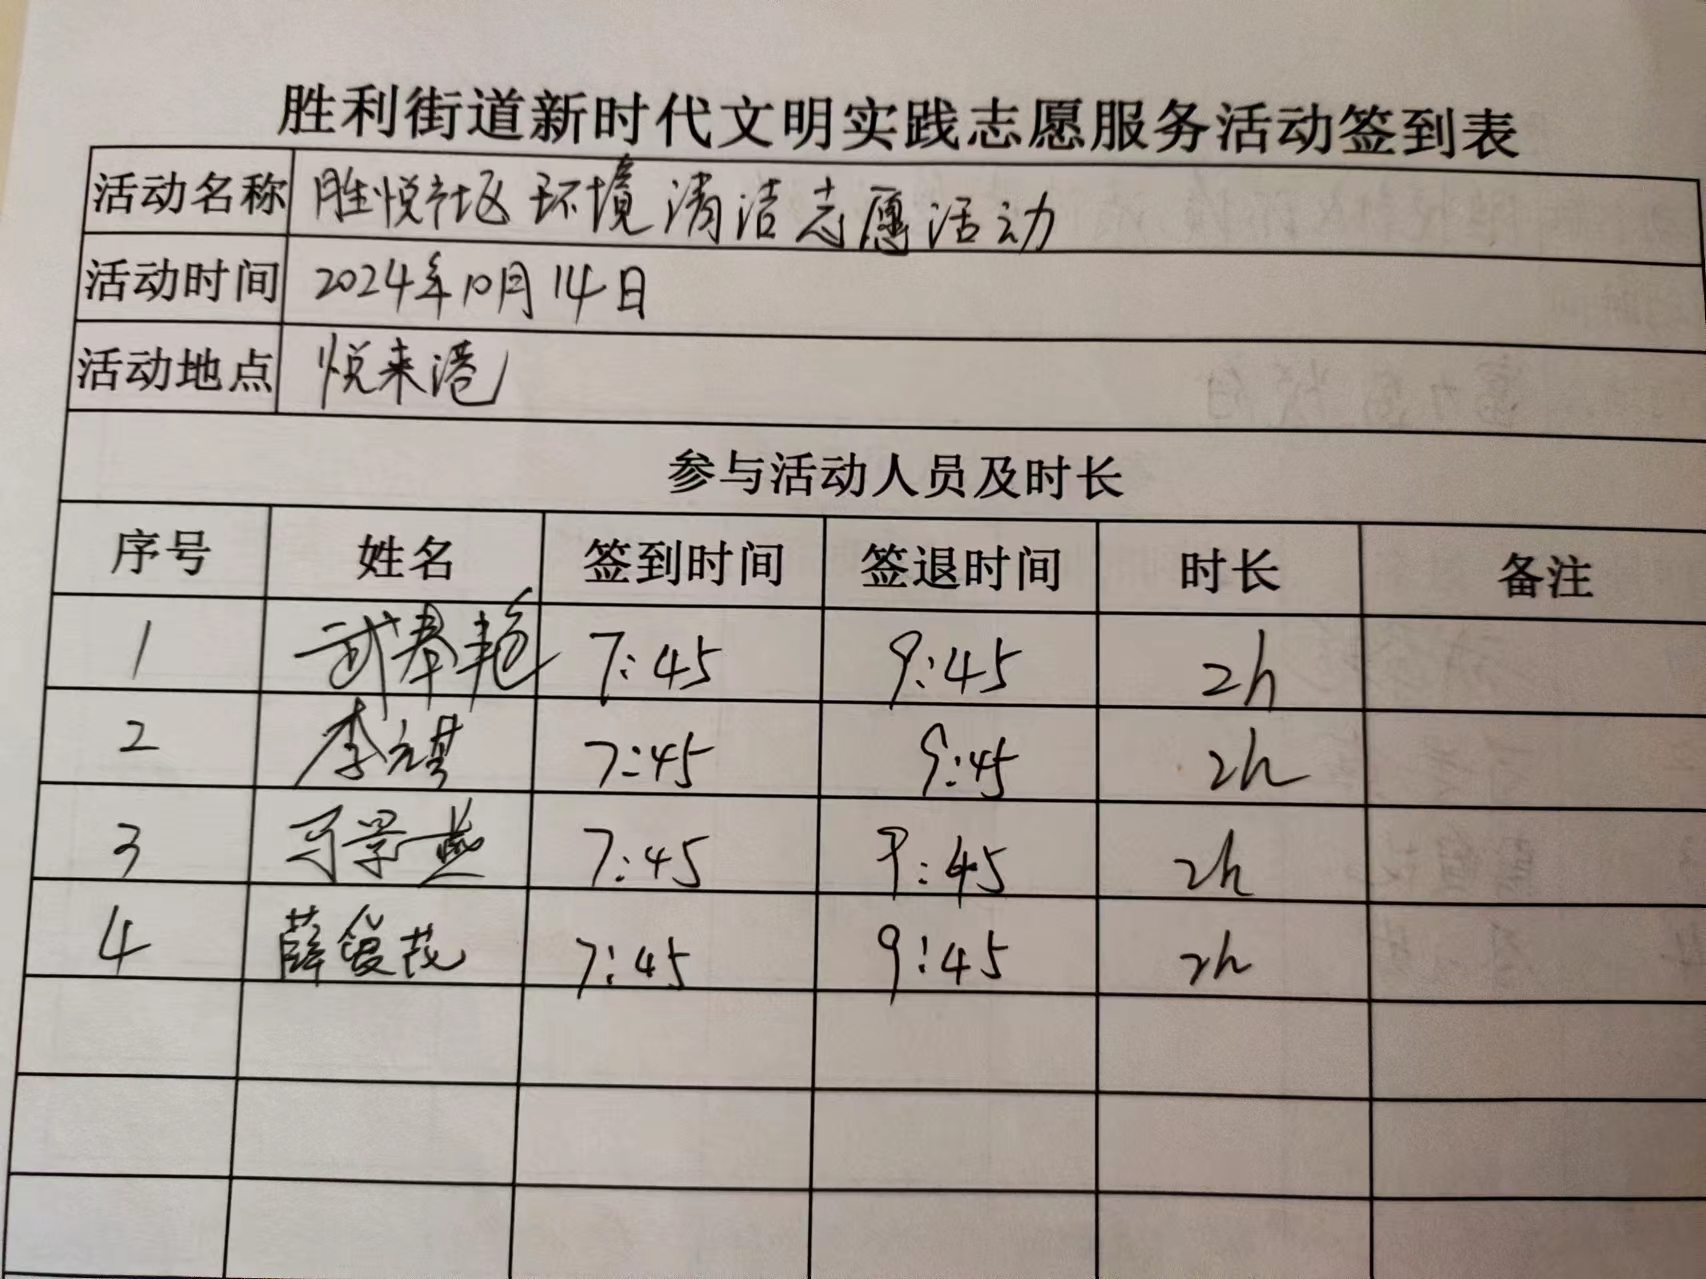 胜利街道新时代文明实践志愿服务活动签到表
活动名称 胜悦社区环境清洁志愿活动
活动时间 2024年10月14日
活动地点 悦来港
参与活动人员及时长
序号 姓名 签到时间 签退时间 时长 备注
1 武春艳 7:45 9:45 2h
2 李元琪 7:45 9:45 2h
3 马景燕 7:45 9:45 2h
4 薛俊茂 7:45 9:45 2h